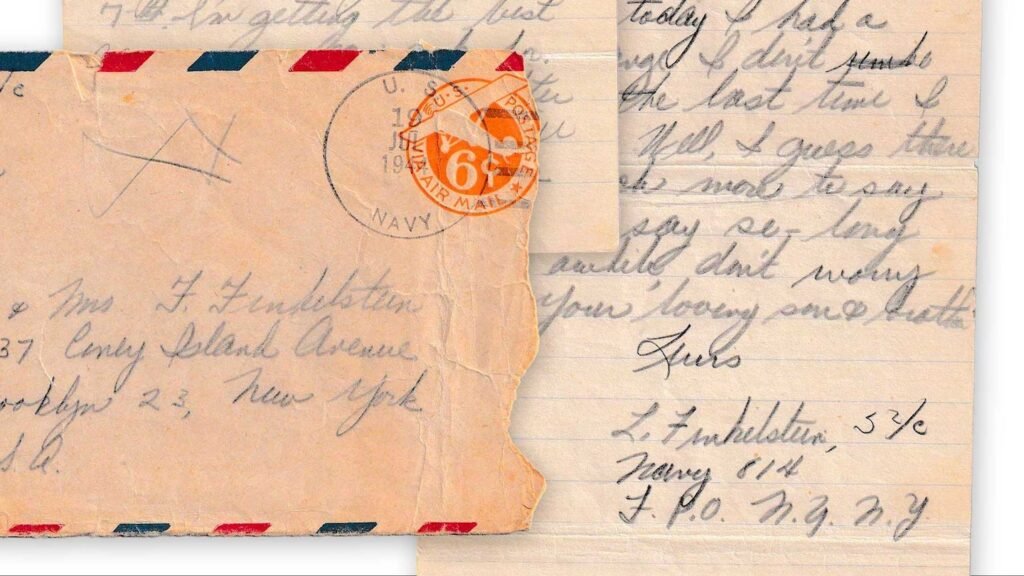 I'm getting the best
/c
U. S.
19
JUL
194
NAVY
U.S. POSTAGE
6¢
VIA AIR MAIL
& Mrs. F. Finkelstein
37 Coney Island Avenue
ooklyn 23, New York
S.A.
today I had a
I don't
the last time I
Well, I guess there
more to say
say so-long
awhile, don't worry
Your loving son &
L. Finkelstein, S2/c
Navy 814
F.P.O. N.Y. N.Y